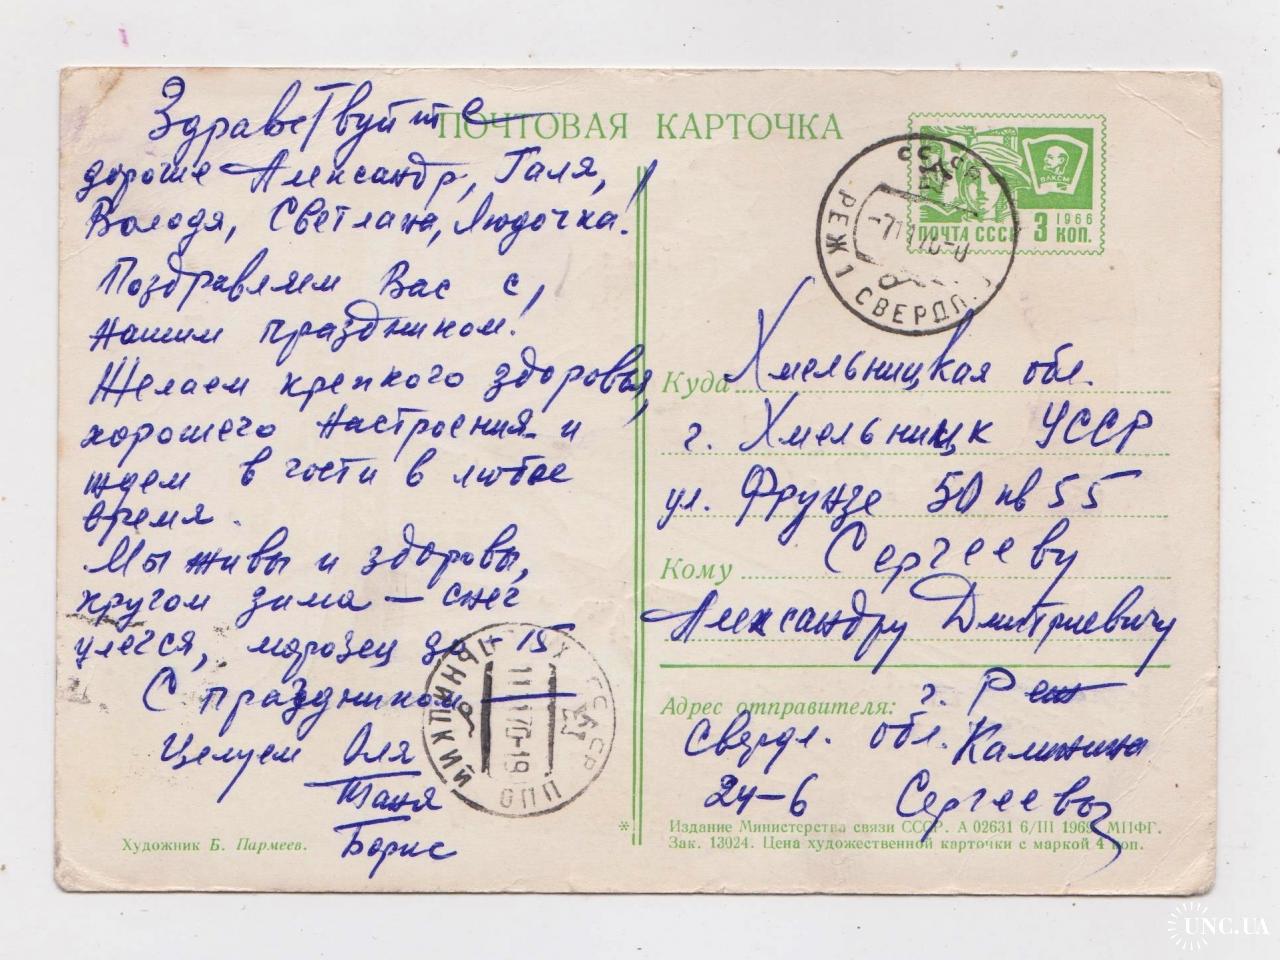 ПОЧТОВАЯ КАРТОЧКА
Здравствуйте
дорогие Александр, Галя,
Володя, Светлана, Людочка!
Поздравляем Вас с
нашим праздником!
Желаем крепкого здоровья,
хорошего настроения и
ждем в гости в любое
время.
Мы живы и здоровы,
кругом зима – снег
улегся, морозец до – 15
С праздником
Целуем Оля
Таня
Борис
Художник Б. Пармеев.
ВЛКСМ
1966
ПОЧТА СССР 3 КОП.
СССР
РЕЖ 1 СВЕРДЛ.
Куда Хмельницкая обл.
г. Хмельницк УССР
ул. Фрунзе 50 кв 55
Кому Сергееву
Александру Дмитриевичу
Адрес отправителя: г. Реж
Свердл. обл. Калинина
24-6 Сергеевы
ЦКИЙ
СССР
ППО
Издание Министерства связи СССР. А 02631 6/III 1969. МПФГ.
Зак. 13024. Цена художественной карточки с маркой 4 коп.
UNC.UA